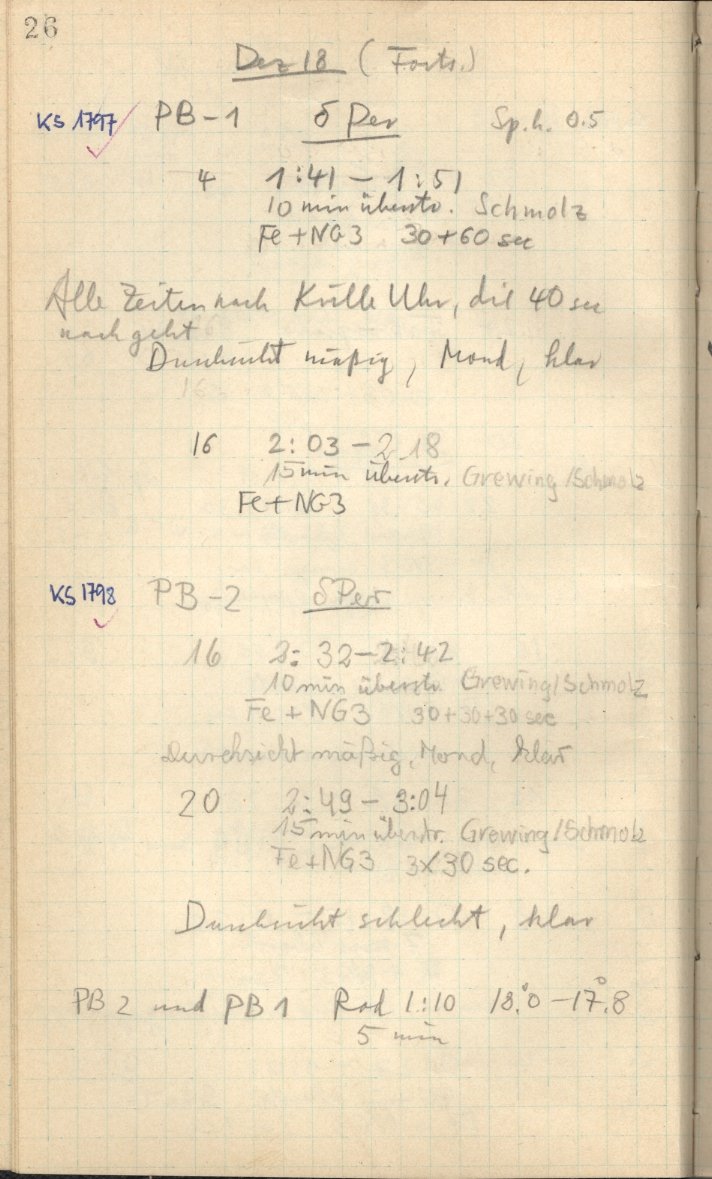 26
Dez 18 (Forts.)
KS 1797 PB-1 δ Per Sp.h. 0.5
4 1:41 - 1:51
10 min überstr. Schmolz
Fe+NG3 30+60 sec
Alle Zeiten nach Külle Uhr, die 40 sec
nach geht
Durchsicht mäßig, Mond, klar
16 2:03 - 2 18
15 min überstr. Grewing/Schmolz
Fe+NG3
KS 1798 PB-2 δ Per
16 2:32-2:42
10 min überstr. Grewing/Schmolz
Fe+NG3 30+30+30 sec
Durchsicht mäßig, Mond, klar
20 2:49 - 3:04
15 min überstr. Grewing/Schmolz
Fe+NG3 3x30 sec.
Durchsicht schlecht, klar
PB 2 und PB 1 Rod 1:10 18°.0 - 17°.8
5 min